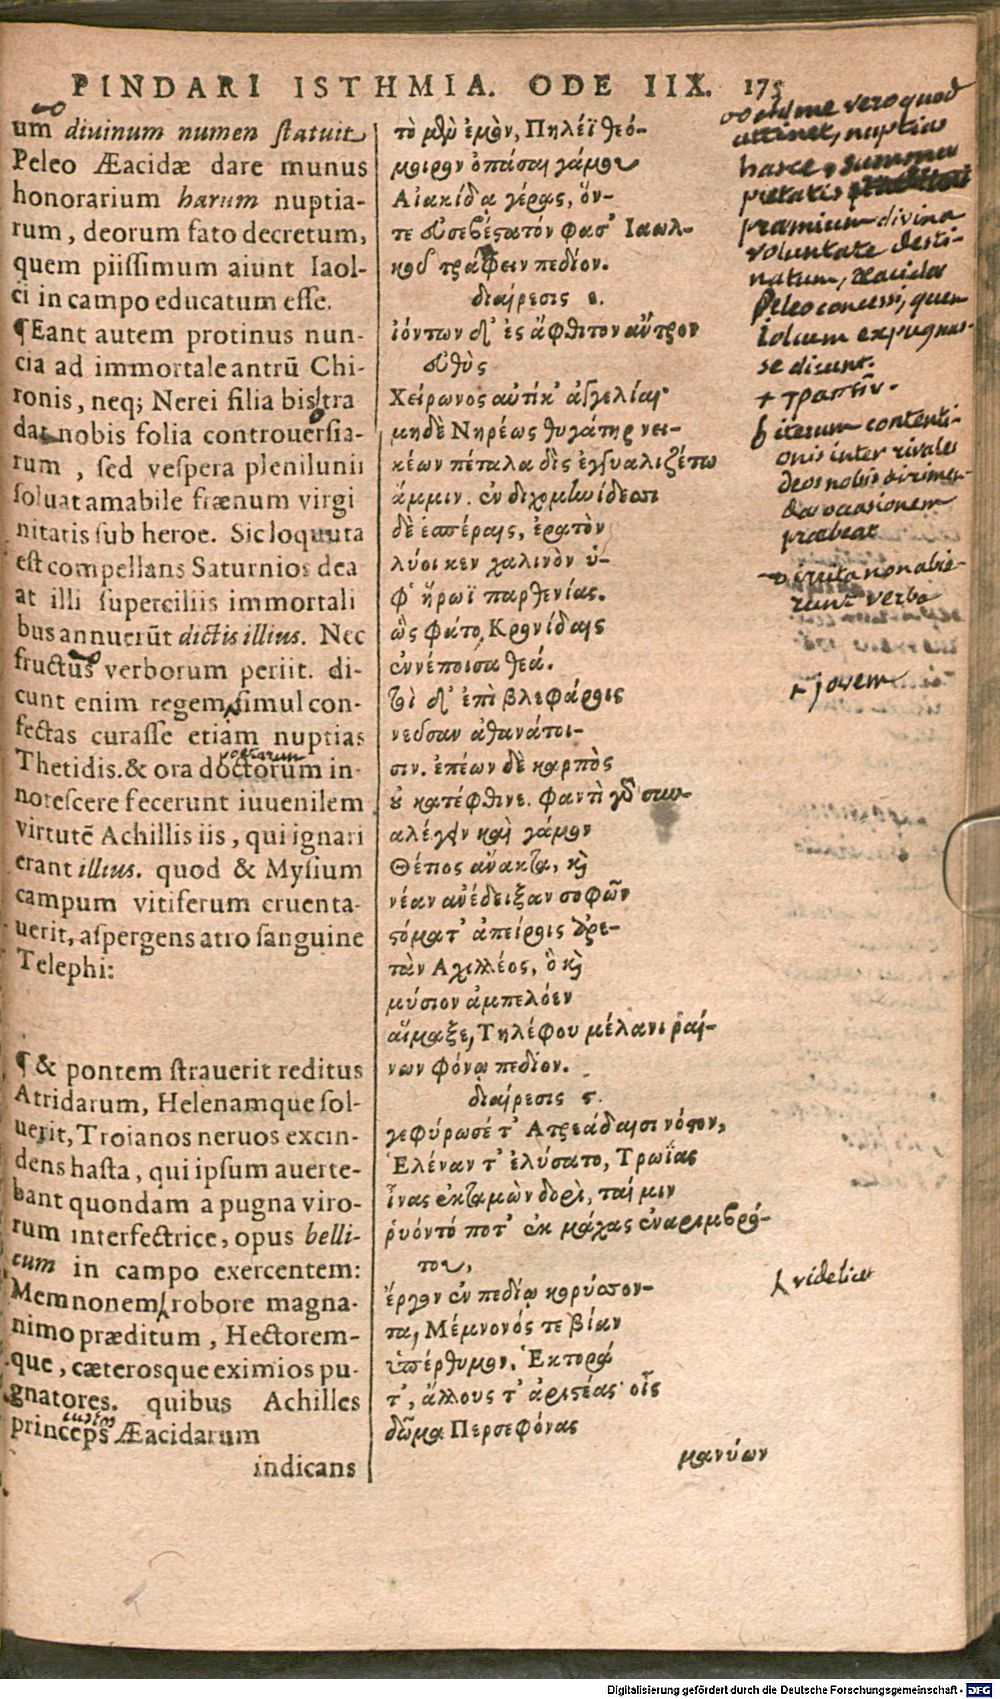 PINDARI ISTHMIA. ODE IIX. 175
um diuinum numen statuit
Peleo Æacidæ dare munus
honorarium harum nuptia-
rum, deorum fato decretum,
quem piissimum aiunt Iaol-
ci in campo educatum esse.
¶Eant autem protinus nun-
cia ad immortale antrū Chi-
ronis, neq; Nerei filia bis tra
dat nobis folia controuersia-
rum, sed vespera plenilunii
soluat amabile frænum virgi
nitatis sub heroe. Sic loquuta
est compellans Saturnios dea
at illi superciliis immortali
bus annuerūt dictis illius. Nec
fructus verborum periit. di-
cunt enim regem, simul con-
fectas curasse etiam nuptias
Thetidis. & ora doctorum in-
notescere fecerunt iuuenilem
virtutē Achillis iis, qui ignari
erant illius. quod & Mysium
campum vitiferum cruenta-
uerit, aspergens atro sanguine
Telephi:
¶ & pontem strauerit reditus
Atridarum, Helenamque sol-
uerit, Troianos neruos excin-
dens hasta, qui ipsum auerte-
bant quondam a pugna viro-
rum interfectrice, opus belli-
cum in campo exercentem:
Memnonem robore magna-
nimo præditum, Hectorem-
que, cæterosque eximios pu-
gnatores. quibus Achilles
princeps Æacidarum
indicans
τὸ μὲν ἐμὸν, Πηλέϊ θεό-
μοιρον ὀπάσαι γάμου
Αἰακίδα γέρας, ὅν-
τε εὐσεβέστατόν φασ' Ἰαωλ-
κοῦ τράφειν πεδίον.
διαίρεσις ε.
ἰόντων δ' ἐς ἄφθιτον ἄντρον
εὐθὺς
Χείρωνος αὐτίκ' ἀγγελίαι·
μηδὲ Νηρέως θυγάτηρ νει-
κέων πέταλα δὶς ἐγγυαλιζέτω
ἄμμιν. ἐν διχομηνίδεσσι
δὲ ἑσπέραις, ἐρατὸν
λύοι κεν χαλινὸν ὑ-
φ' ἥρωϊ παρθενίας.
ὣς φάτο, Κρονίδαις
ἐννέποισα θεά.
τοὶ δ' ἐπὶ βλεφάροις
νεῦσαν ἀθανάτοι-
σιν. ἐπέων δὲ καρπὸς
οὐ κατέφθινε. φαντὶ γὰρ συν-
αλέγειν καὶ γάμον
Θέτιος ἄνακτα, καὶ
νέαν ἀνέδειξαν σοφῶν
στόματ' ἀπείροις ἀρε-
τὰν Ἀχιλλέος, ὃ καὶ
μύσιον ἀμπελόεν
αἵμαξε, Τηλέφου μέλανι ῥαί-
νων φόνῳ πεδίον.
διαίρεσις ϛ.
γεφύρωσέ τ' Ἀτρεάδαισι νόστον,
Ἑλέναν τ' ἐλύσατο, Τρωΐας
ἶνας ἐκταμὼν δορὶ, ταί μιν
ῥυόντό ποτ' ἐκ μάχας ἐναριμβρό-
του,
ἔργον ἐν πεδίῳ κορύσσον-
τα, Μέμνονός τε βίαν
ὑπέρθυμον, Ἕκτορά
τ', ἄλλους τ' ἀριστέας οἷς
δῶμα Περσεφόνας
μανύων
ad me vero quod
attinet, nuptias
hasce, summæ
pietatis
præmium divina
voluntate desti-
natum, Æacidæ
Peleo concessi, quem
Iolcum expugnas-
se dicunt.
+
iterum contenti-
onis inter rivales
deos nobis dirimen-
dæ occasionem
præbeat
irrita non abie-
runt verba
+ Jovem
videlicet